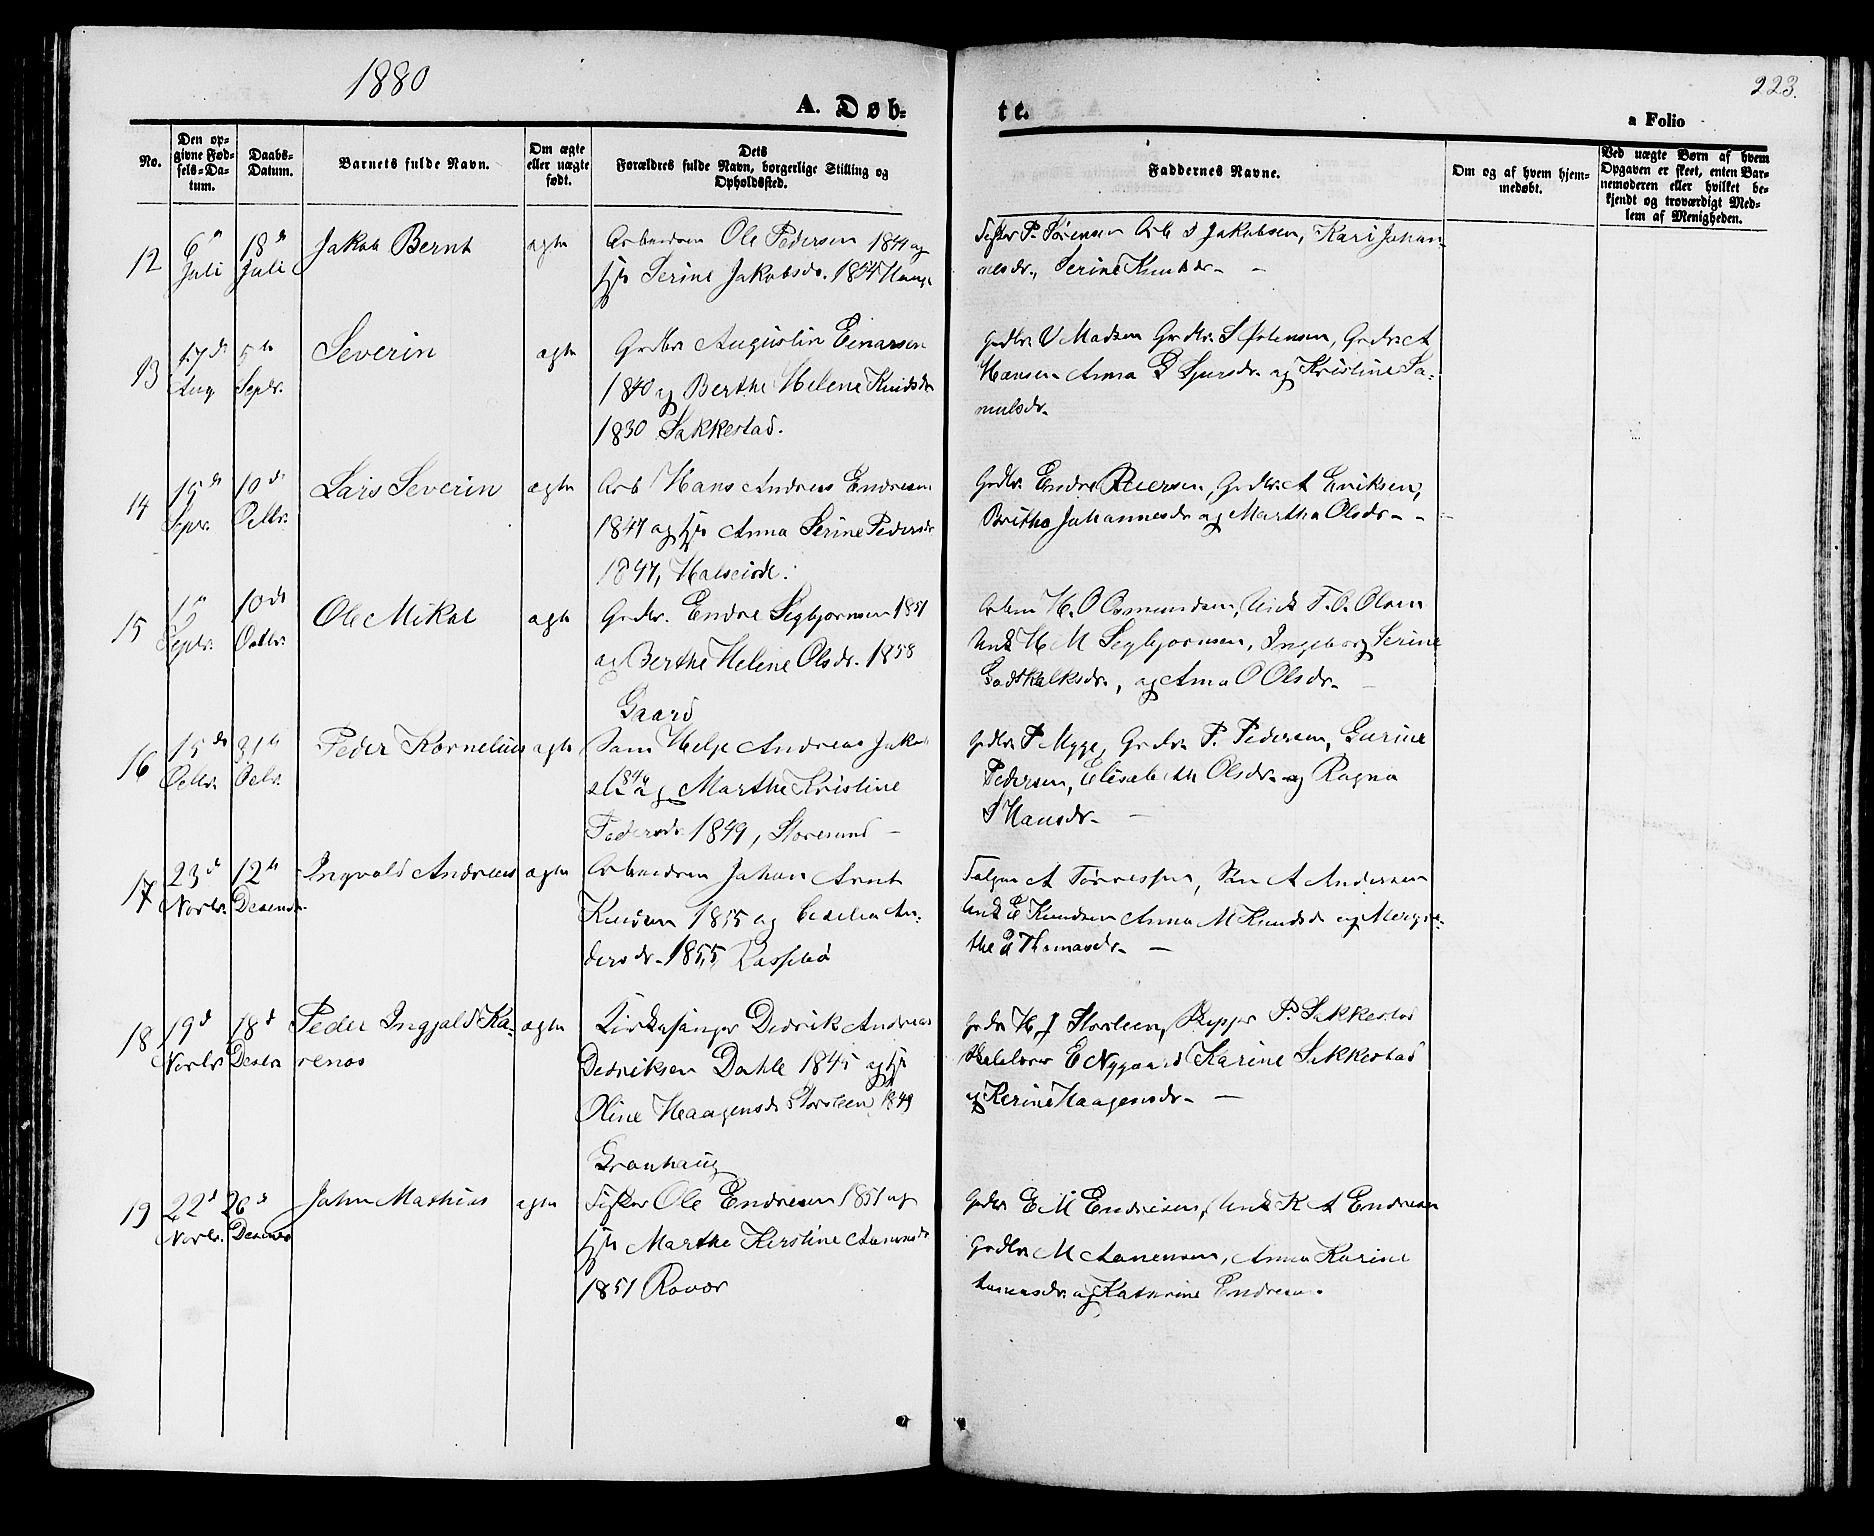 1880
A. Døb-
te.
223.
a Folio
No.
Den op-
givne Fød-
sels-Da-
tum.
Daabs-
Datum.
Barnets fulde Navn.
Om ægte
eller uægte
født.
Dets
Forældres fulde Navn, borgerlige Stilling og
Opholdssted.
Faddernes Navne.
Om og af hvem hjem-
medøbt.
Ved uægte Børn af hvem
Opgaven er skeet, enten Bar-
nemoderen eller hvilket be-
kjendt og troværdigt Med-
lem af Menigheden.
12
6
Juli
18
Juli
Jakob Bernt
agte
Arbeidsm Ole Pedersen 1844 og
Serine Jakobsdr. 1854
Fisker P. Sørensen Arb S Jakobsen, Kari Johan-
nesdr., Serine Knutsdr. -
13
17de
Aug
5te
Septr.
Severin
agte
Grdbr Augustin Einarsen
1840 og Berthe Helene Knudsdr
1830 Sakkestad.
Grdbr. V Madsen Grdbr. S Østensen, Grdbr A
Hansen Anna D Sjursdr. og Kristine Sa-
mulsdr.
14
15de
Spbr.
10de
Octbr.
Lars Severin
agte
Arb Hans Andreas Endresen
1847 og Anna Serine Pedersdr
1847,
Grdbr. Endre Reiersen, Grdbr. A Eriksen,
Britha Johannesdr og Martha Olsdr - -
15
Septr.
10de
Octbr.
Ole Mikal
agte
Grdbr. Endre Segbjornsen 1851
og Berthe Helene Olsdr. 1858
Gaard
H. O Osmundsen, Unk T. O. Olsen
Unk H M Segbjornsen, Ingeborg Serine
Godtskalksdr., og Anna O Olsdr. -
16
15de
Octbr.
31te
Octbr.
Peder Kornelius
agte
Helje Andreas Jakob-
1846 og Marthe Kristine
Pedersdr 1849, Storesund -
Grdbr P Mygge, Grdbr P. Pedersen, Gurine
Pedersen, Elisabeth Olsdr. og Ragna
S Hansdr. -
17
23de
Novbr.
12te
Desembr
Ingvald Andreas
agte
Arbeidsm Johan Arnt
Knudsen 1855 og Cecilia An-
dersdr. 1855
A Tørresen, A Andersen
Unk E Knudsen Anna M Knudsdr og Margre-
the E Thomasdr. -
18
19de
Novbr
18de
Desbr
Peder Ingjald Ka-
renos
agte
Kirkesanger Dedrik Andreas
Dedriksen Dahle 1845 og
Oline Haagensdr Storsteen 1849
Grønhaug
Grdbr H J Storsteen, Skipper P. Sakkestad
Skolelærer E Nygaard Karine Sakkestad
og Serine Haagensdr. -
19
22de
Novbr.
26de
Desembr
John Mathias
agte
Fisker Ole Endresen 1851 og
Marthe Kirstine Aanensdr
1851 Rovær
Grdbr E M Endresen, Unk K A Endresen
Grdbr M Aanensen, Anna Karine
Aanensdr. og Kathrine Endresen.